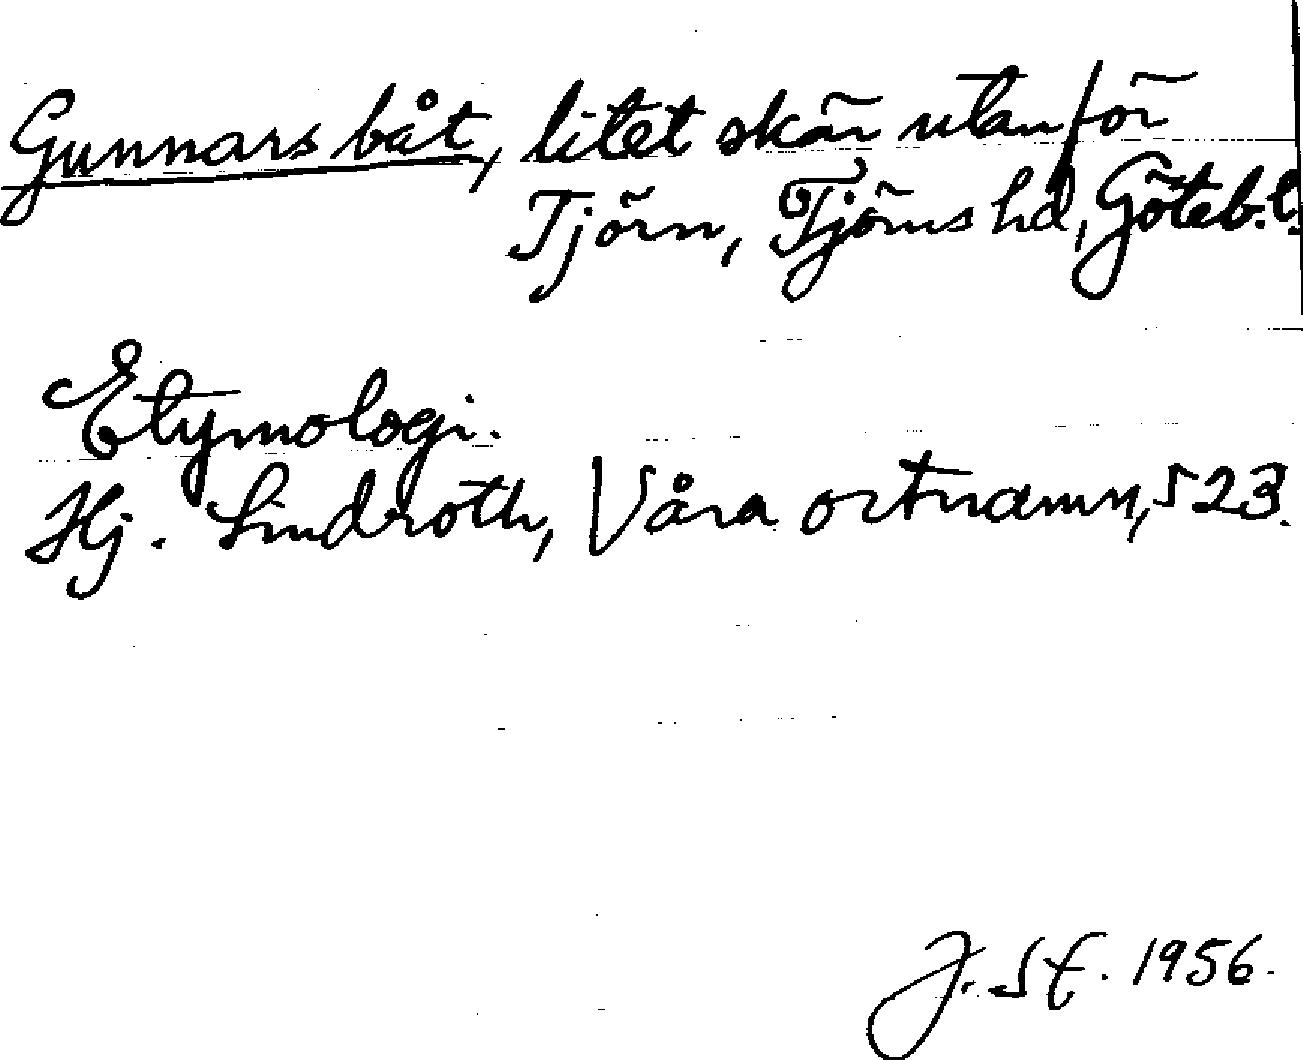 Gunnars båt, litet skär utanför
Tjörn, Tjörns hd, Göteb. l.
Etymologi.
Hj. Lindroth, Våra ortnamn, s 23.
J. Sf. 1956.